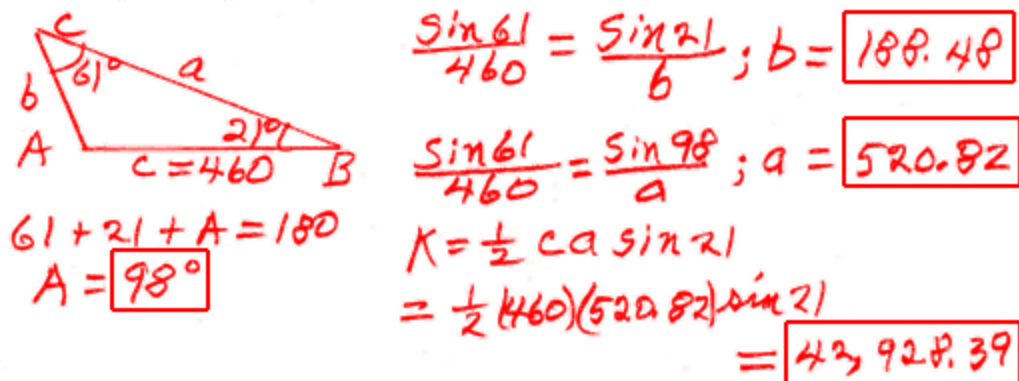 C
61°
a
b
21°
A
c = 460
B
61 + 21 + A = 180
A = 98°
sin 61 / 460 = sin 21 / b ; b = 188.48
sin 61 / 460 = sin 98 / a ; a = 520.82
K = 1/2 ca sin 21
= 1/2 (460)(520.82) sin 21
= 42,928.39